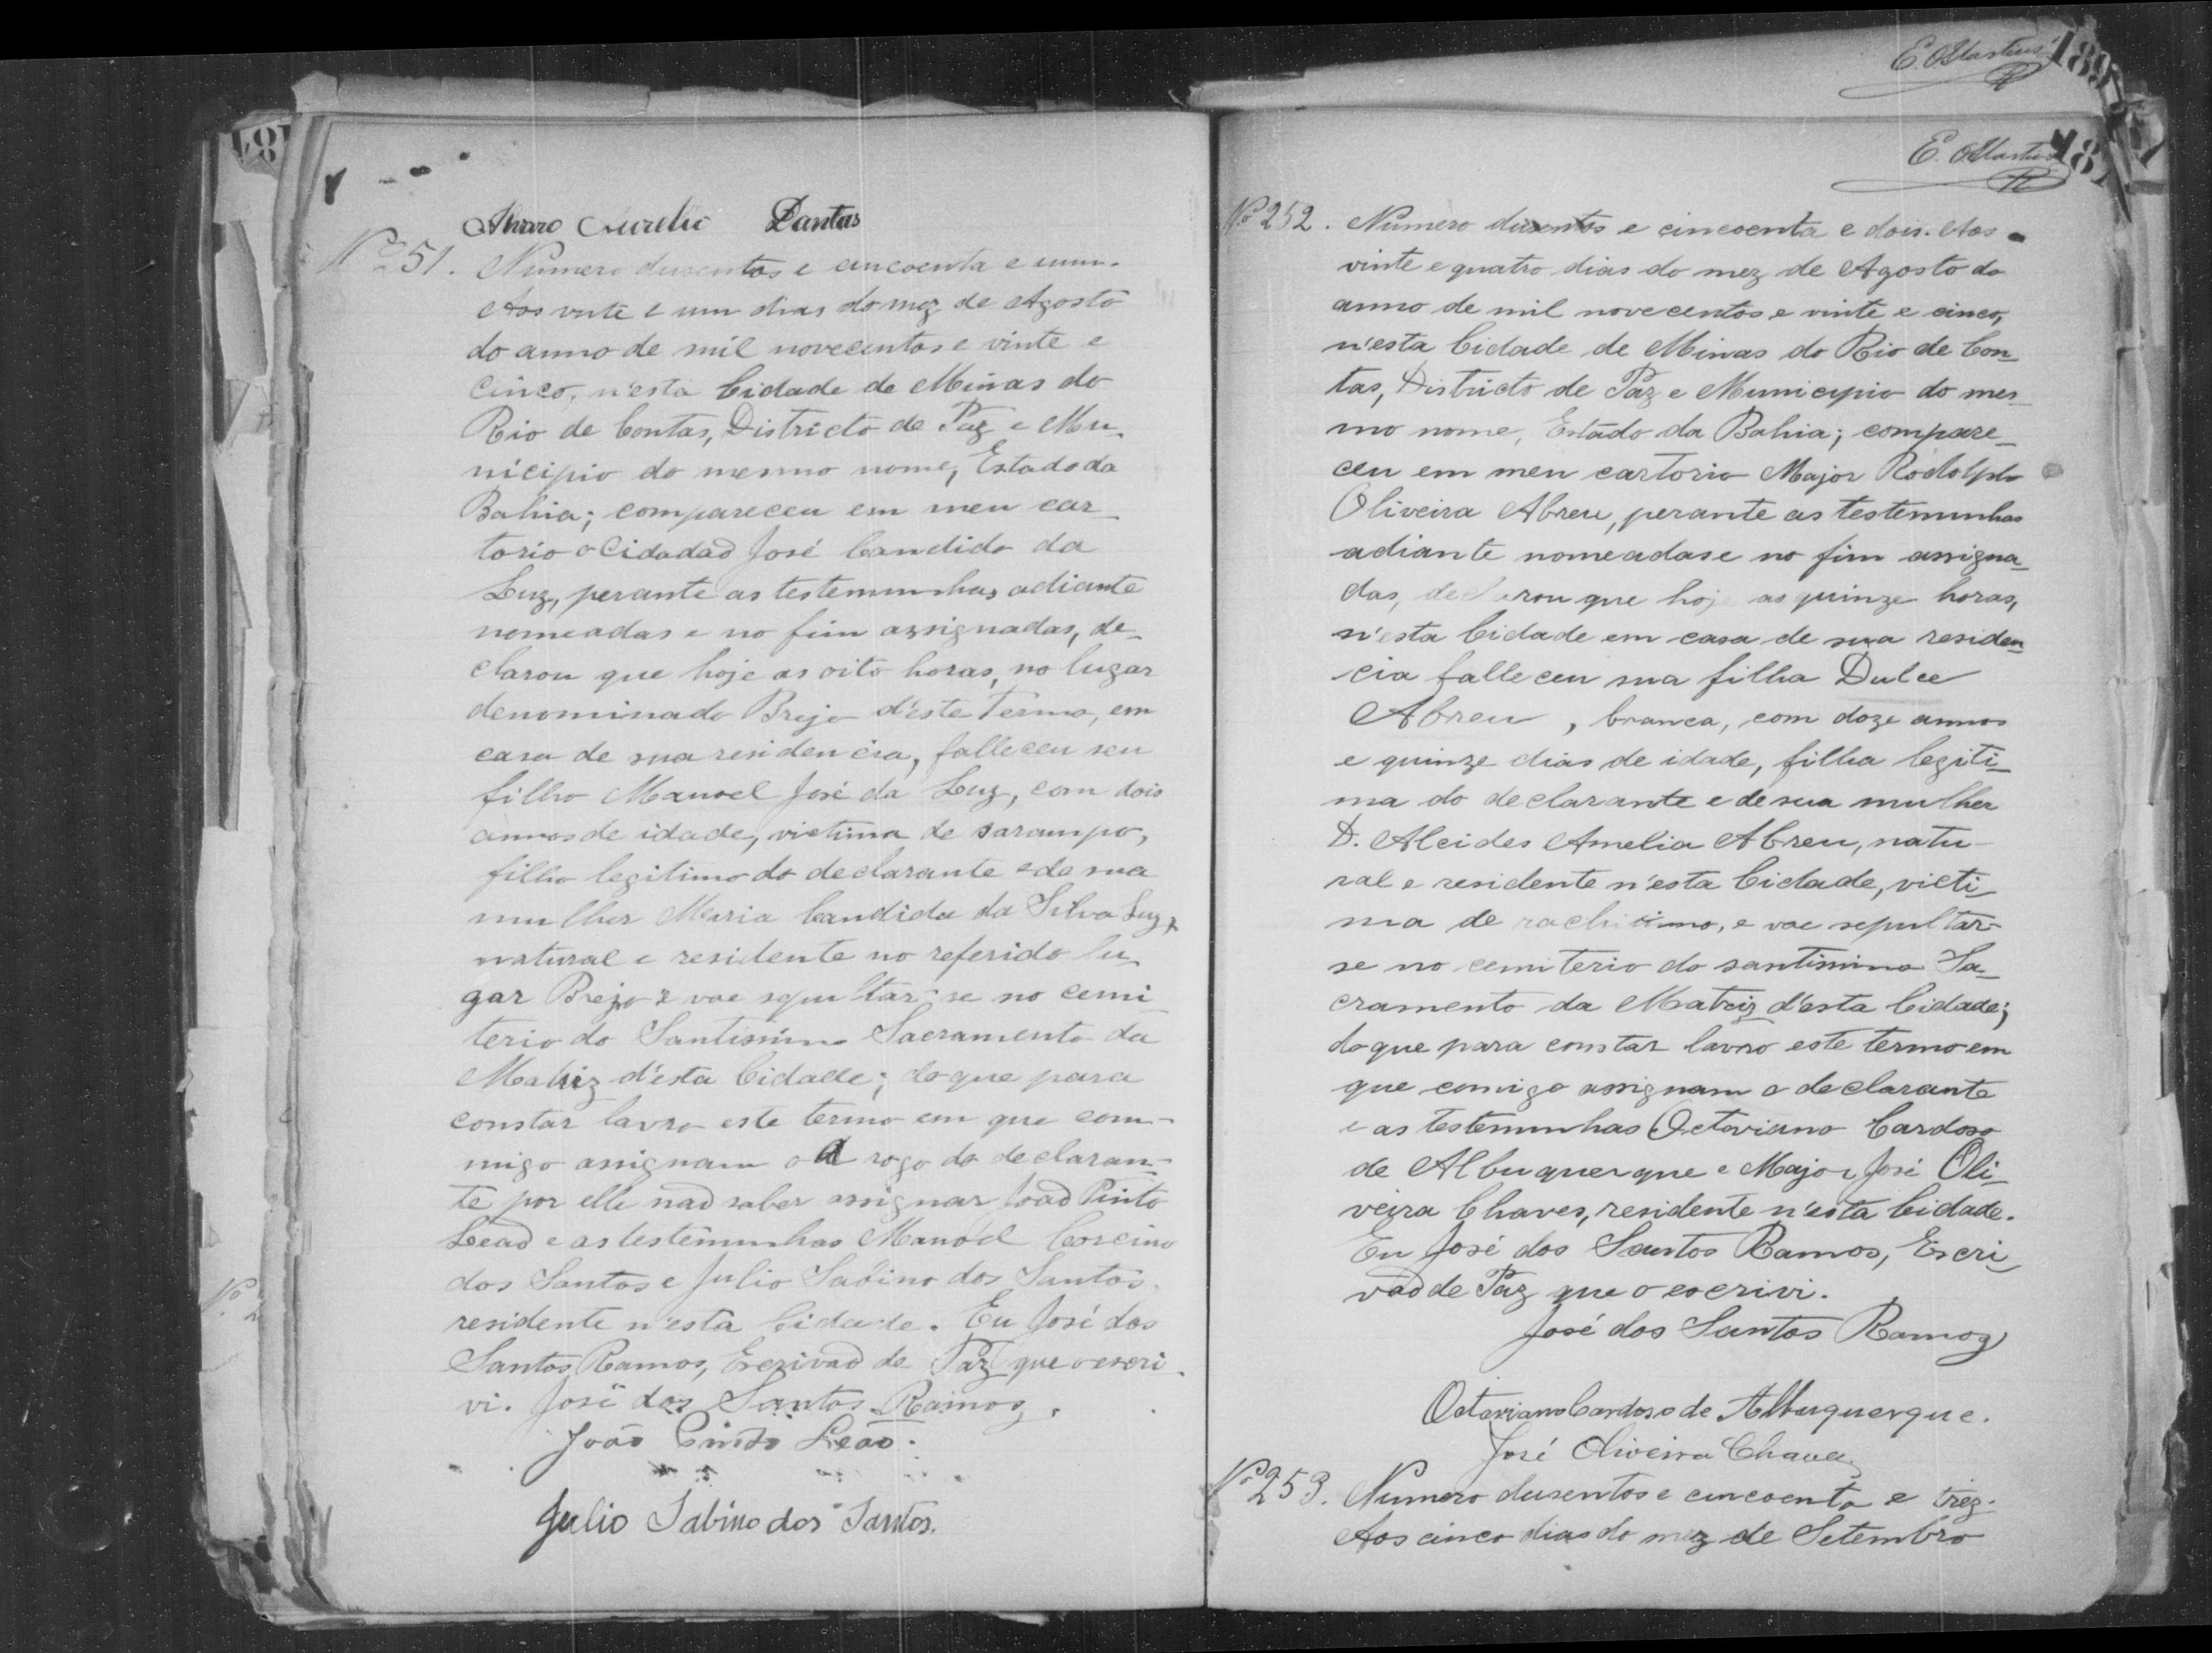 Alvaro Aurelio Dantas
Nº 251. Numero dusentos e cincoenta e um.
Aos vinte e um dias do mez de Agosto
do anno de mil novecentos e vinte e
cinco, n'esta Cidade de Minas do
Rio de Contas, Districto de Paz e Mu_
nicipio do mesmo nome, Estado da
Bahia; compareceu em meu car_
torio o Cidadão José Candido da
Luz, perante as testemunhas adiante
nomeadas e no fim assignadas, de_
clarou que hoje as oito horas, no lugar
denominado Brejo d'este Termo, em
casa de sua residencia, falleceu seu
filho Manoel José da Luz, com dois
annos de idade, victima de sarampo,
filho legitimo do declarante e de sua
mulher Maria Candida da Silva Luz,
natural e residente no referido lu_
gar Brejo e vae sepultar-se no cemi_
terio do Santissimo Sacramento da
Matriz d'esta Cidade; do que para
constar lavro este termo em que com-
migo assignam o A rogo do declaran-
te por elle não saber assignar João Pinto
Leão e as testemunhas Manoel Corcino
dos Santos e Julio Sabino dos Santos.
residente n'esta Cidade. Eu José dos
Santos Ramos, Escrivão de Paz que o escri_
vi. José dos Santos Ramos.
João Pinto Leão.
Julio Sabino dos Santos.
E. Martins
189
E. Martins
187
Nº 252. Numero dusentos e cincoenta e dois. Aos
vinte e quatro dias do mez de Agosto do
anno de mil novecentos e vinte e cinco,
n'esta Cidade de Minas do Rio de Con_
tas, Districto de Paz e Municipio do mes_
mo nome, Estado da Bahia; compare_
ceu em meu cartorio Major Rodolpho
Oliveira Abreu, perante as testemunhas
adiante nomeadas e no fim assigna_
das, declarou que hoje as quinze horas,
n'esta Cidade em casa de sua residen_
cia falleceu sua filha Dulce
Abreu, branca, com doze annos
e quinze dias de idade, filha legiti_
ma do declarante e de sua mulher
D. Alcides Amelia Abreu, natu-
ral e residente n'esta Cidade, victi_
ma de rachitismo, e vae sepultar-
se no cemiterio do santissimo Sa_
cramento da Matriz d'esta Cidade;
do que para constar lavro este termo em
que comigo assignam o declarante
e as testemunhas Octaviano Cardoso
de Albuquerque e Major José Oli_
veira Chaves, residente n'esta Cidade.
Eu José dos Santos Ramos, Escri_
vão de Paz que o escrivi.
José dos Santos Ramos
Octaviano Cardoso de Albuquerque.
José Oliveira Chaves.
Nº 253. Numero dusentos e cincoenta e trez.
Aos cinco dias do mez de Setembro